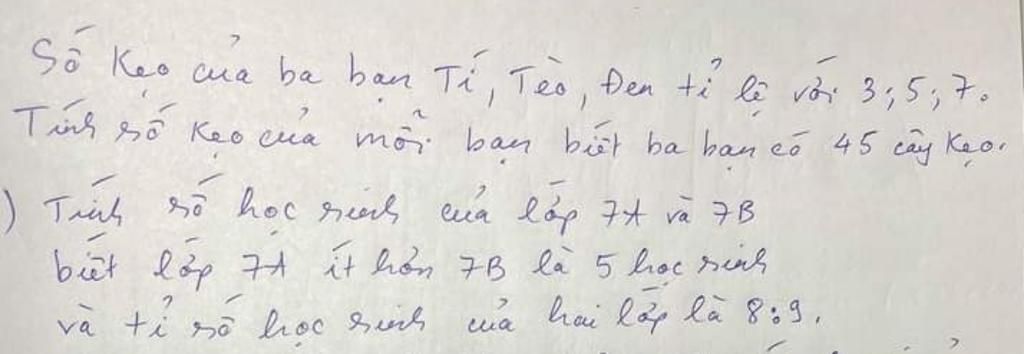 Số kẹo của ba bạn Tí, Tèo, Đen tỉ lệ với 3; 5; 7.
Tính số kẹo của mỗi bạn biết ba bạn có 45 cây kẹo.
) Tính số học sinh của lớp 7A và 7B
biết lớp 7A ít hơn 7B là 5 học sinh
và tỉ số học sinh của hai lớp là 8:9.